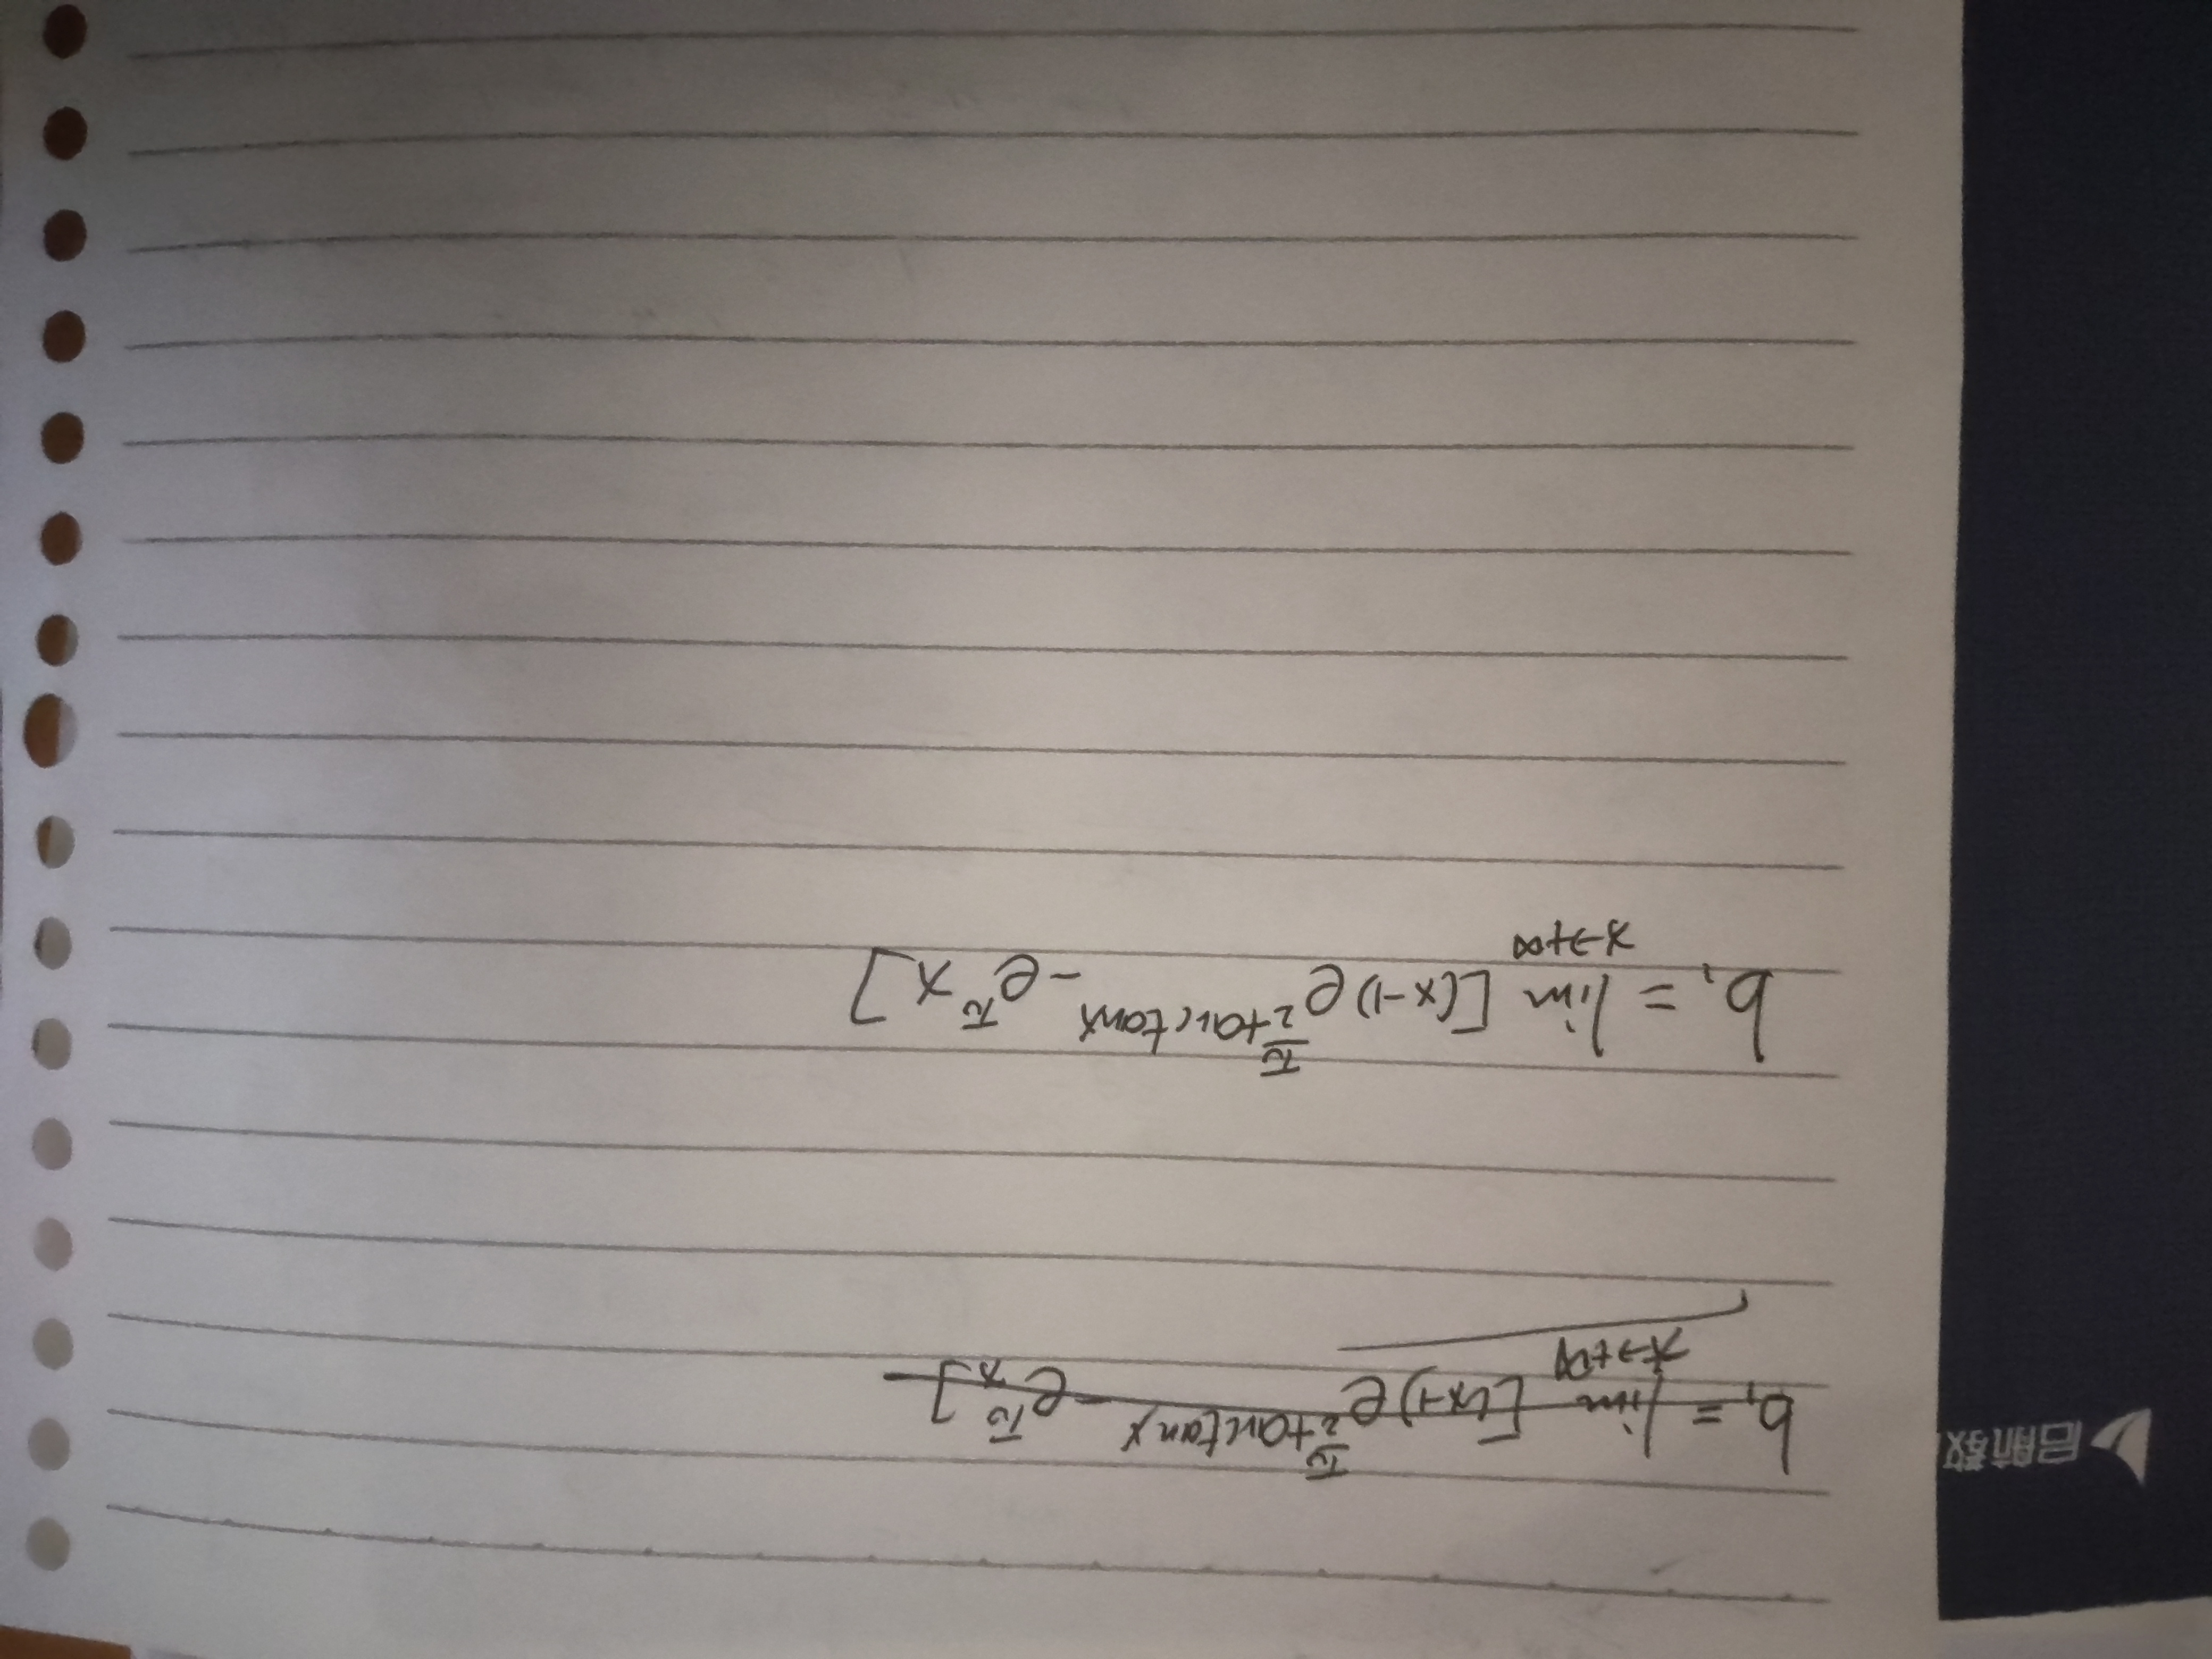 启航教
b₁ = lim [(x-1)e^{π/2+arctanx} - e^π x]
x→+∞
b₁ = lim [(x-1)e^{π/2+arctanx} - e^π x]
x→+∞